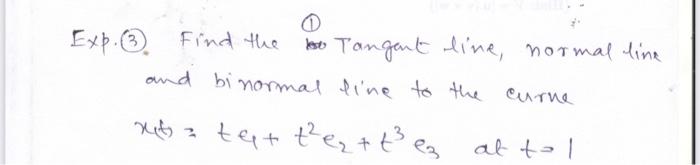 ①
Exp.③. Find the Tangent line, normal line
and binormal line to the curve
x(t) = te₁ + t²e₂ + t³e₃ at t=1